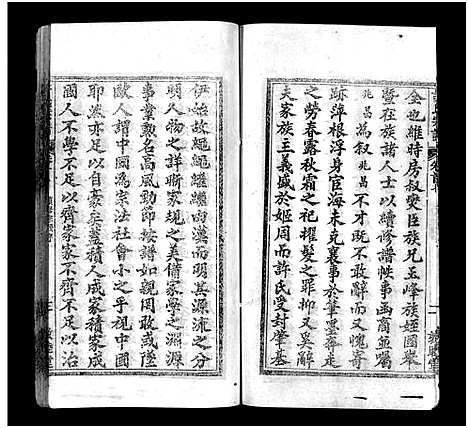 全也維時房叔燮臣族兄玉峰族姪國舉
暨在族諸人士以續修譜帙事函商並囑
兆昌為叙兆昌不才既不敢辭而又愧寄
跡萍根浮身宦海未克襄事於筆墨奔走
之勞春露秋霜之祀擢髮之罪抑又奚辭
夫家族主義盛於姬周而許氏受封肇基
伊始故繩繩繼繼由漢而明其源流之分
明人物之詳晰家規之美備家學之淵源
事業勲名高風勁節按譜如親罔敢或墜
歐人謂中國為宗法社會小之乎視中國
耶然亦足以豪矣蓋積人成家積家成
國人不學不足以齊家家不齊不足以治